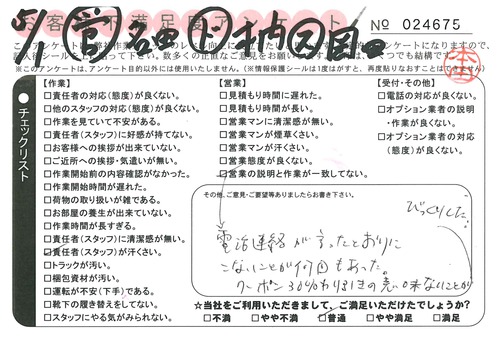 お客様不満足度アンケート
No 024675
5/
営
本社
※このアンケートは、アンケート目的以外には使用いたしません。（※情報保護シールは1度はがすと、再度貼りなおすことは
チェックリスト
【作業】
□責任者の対応（態度）が良くない。
□他のスタッフの対応（態度）が良くない。
□作業を見ていて不安がある。
□責任者（スタッフ）に好感が持てない。
□お客様への挨拶が出来ていない。
□ご近所への挨拶・気遣いが無い。
□作業開始前の内容確認がなかった。
□作業開始時間が遅れた。
□荷物の取り扱いが雑である。
□お部屋の養生が出来ていない。
□作業時間が長すぎる。
□責任者（スタッフ）に清潔感が無い。
□責任者（スタッフ）が汗くさい。
□トラックが汚い。
□梱包資材が汚い。
□運転が不安（下手）である。
□靴下の履き替えをしてない。
□スタッフにやる気がみられない。
【営業】
□見積もり時間に遅れた。
□見積もり時間が長い。
□営業マンに清潔感が無い。
□営業マンが煙草くさい。
□営業マンが汗くさい。
□営業態度が良くない。
□営業の説明と作業が一致してない。
【受付・その他】
□電話の対応が良くない。
□オプション業者の説明
・作業が良くない。
□オプション業者の対応
（態度）が良くない。
その他、ご意見・ご要望等ありましたらお書き下さい。
電話連絡が言ったとおりに
こないことが何回もあった。
クーポン30%わり引きの意味ないことが
びっくりした。
☆当社をご利用いただきまして、ご満足いただけたでしょうか？
□不満 □やや不満 □普通 □やや満足 □満足